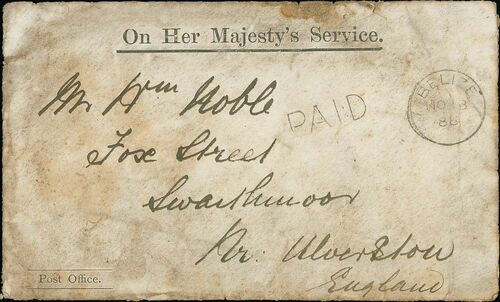 On Her Majesty's Service.
Mr Wm Noble
PAID
BELIZE
NO 8
88
Fox Street
Swarthmoor
Nr. Ulverston
England
Post Office.